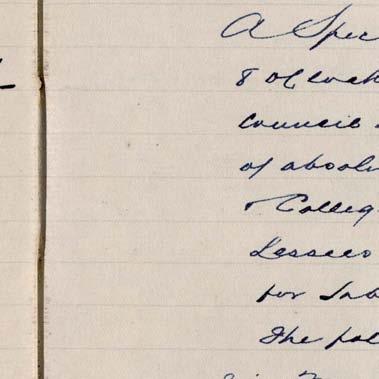 A Spec
8 o'clock
Council
of absolu
& Colleg
Lessees
for
The fol